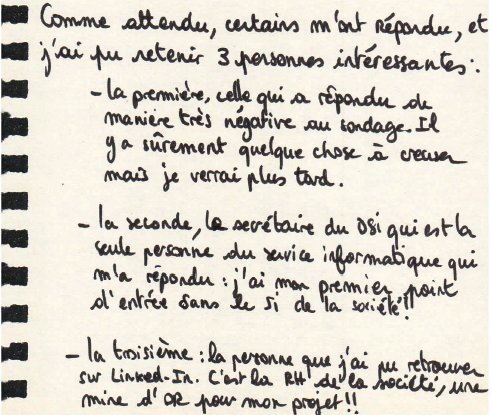 Comme attendu, certains m'ont répondu, et
j'ai pu retenir 3 personnes intéressantes :
- la première, celle qui a répondu de
manière très négative au sondage. Il
y a sûrement quelque chose à creuser
mais je verrai plus tard.
- la seconde, la secrétaire du DSI qui est la
seule personne du service informatique qui
m'a répondu : j'ai mon premier point
d'entrée dans le SI de la société !!
- la troisième : la personne que j'ai pu retrouver
sur Linked-In. C'est la RH de la société, une
mine d'OR pour mon projet !!